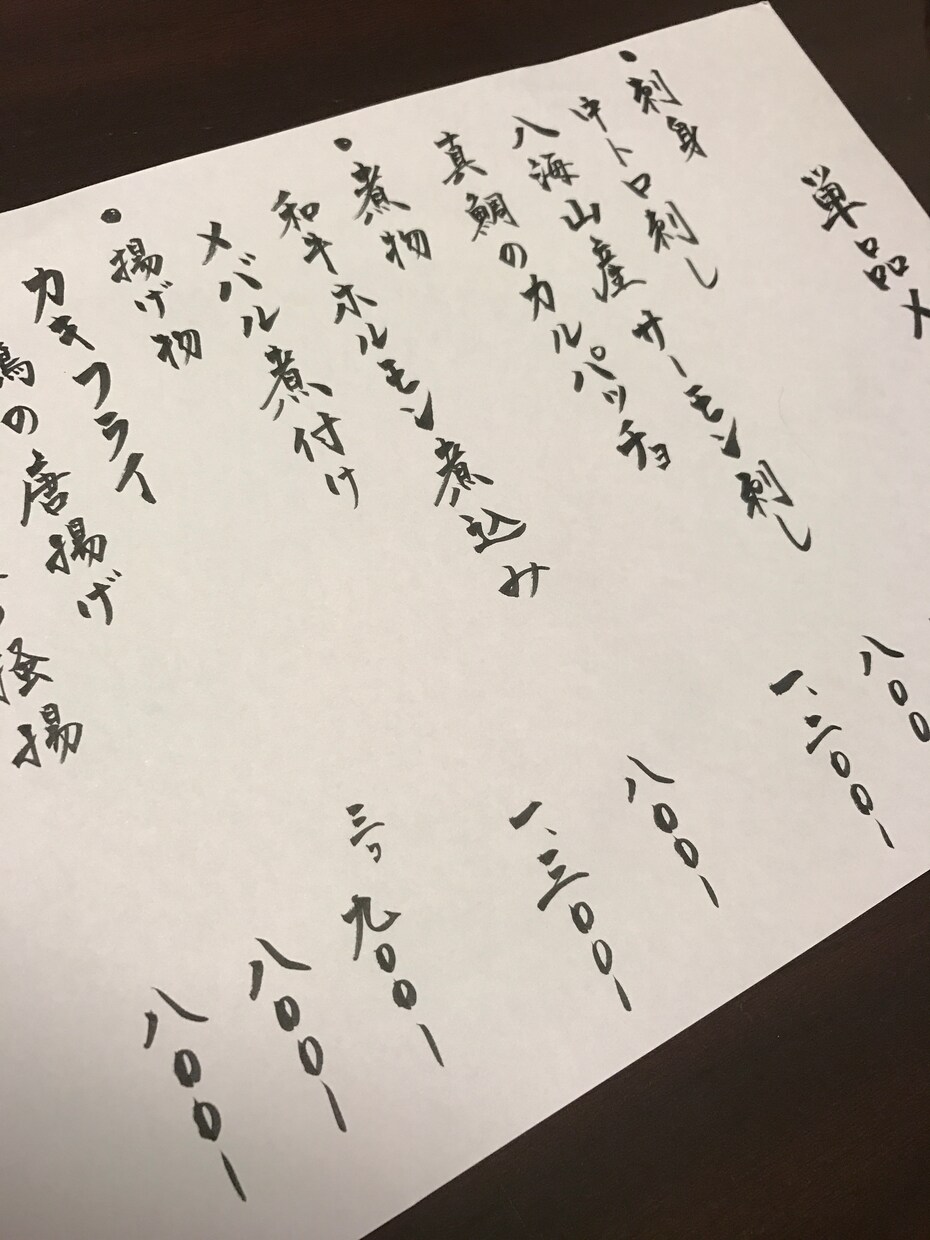 単品メ
・刺身
中トロ刺し
八海山産サーモン刺し 八〇〇
真鯛のカルパッチョ 一、二〇〇-
・煮物
和牛ホルモン煮込み 八〇〇-
メバル煮付け 一、三〇〇-
・揚げ物
カキフライ 三ツ 九〇〇-
の唐揚げ 八〇〇-
掻揚 八〇〇-